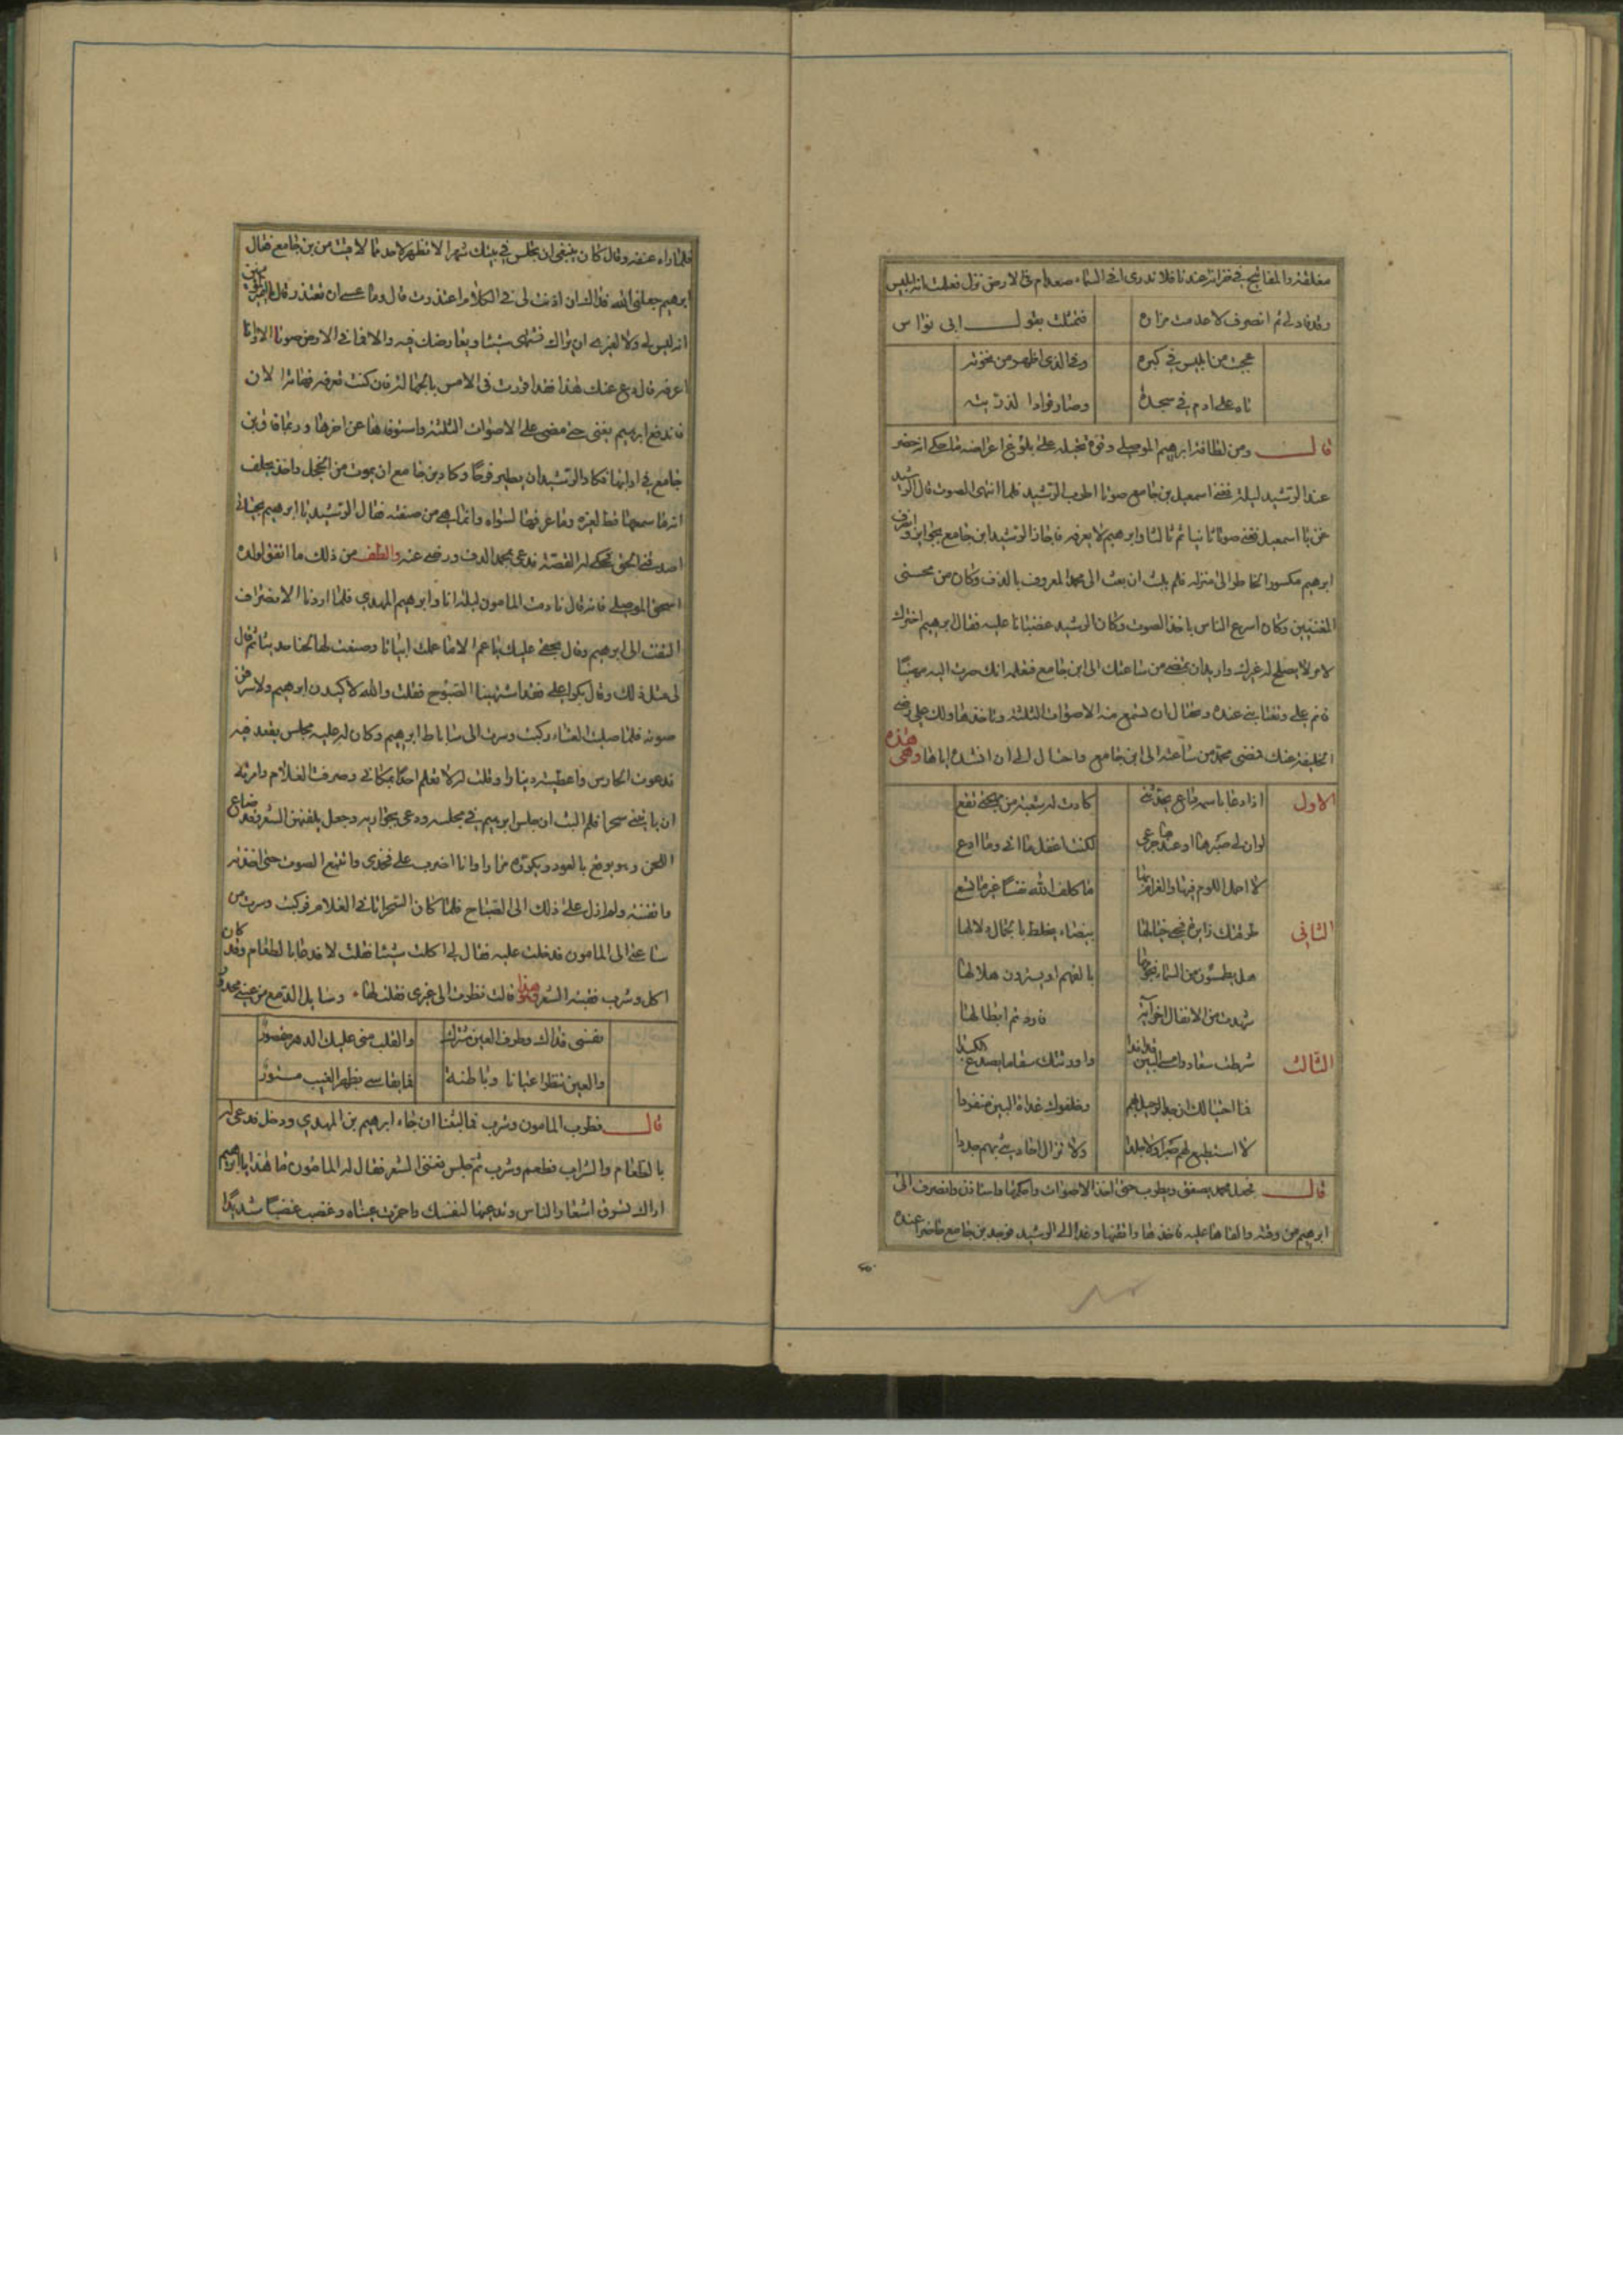 مغلقة والمفاتيح في خزانته عندنا فلا ندرى افى السماء صعد ام فى الارض نزل فعلمت انه ابليس
وقد قاد لى ثم انصرف لاعدمت مزاره فتمثلت بقول ابى نواس
عجبت من ابليس في كبره وفي الذى اظهر من نخوته
تاه على ادم في سجدة وصار قوادا لذريته
قال ومن لطافة ابرهيم الموصلى وقوة تحيله على بلوغ اغراضه ما حكى انه حضر
عند الرشيد ليلة فغنى اسمعيل بن جامع صوتا اطرب الرشيد فلما انتهى الصوت قال الرشيد
غن يا اسمعيل فغنى صوتا ثانيا ثم ثالثا وابرهيم لا يعرفه فاجاز الرشيد ابن جامع بجوايز وانصرف
ابرهيم مكسور الخاطر الى منزله فلم يلبث ان بعث الى محمد المعروف بالدف وكان من محسنى
المغنيين وكان اسرع الناس باخذ الصوت وكان الرشيد غضبانا عليه فقال ابرهيم اخترك
لامر لا يصلح له غيرك واريد ان تمضى من ساعتك الى ابن جامع فتعلمه انك صرت اليه مهنئا
وتحتال ان تسمع منه الاصوات الثلثة وتاخذها ولك على رضى
الخليفة عنك فمضى محمد من ساعته الى ابن جامع واحتال الى ان انشده اياها وهى هذه
الاول اذا دعا باسمها داع يحدثنى كادت له شعبة من مهجتى تقع
لو ان لى صبرها او عندها جزعى لكنت اعقل ما اتى وما ادع
لا احمل اللوم فيها والغرام بها ما كلف الله نفسا غير ما تسع
الثانى طرقتك زايرة فحى خيالها بيضاء يخلط بالجمال دلالها
هل يطمسون من السماء نجومها بالفهم او يسترون هلالها
شهدت من الانفال اخر آية فاردتم ابطالها
الثالث شطت سعاد وامسى البين قد افدا واورثتك سقاما يصدع الكبدا
فما احتيالك ان جد الرحيل بهم وخلفوك غداة البين منفردا
لا استطيع لهم صبرا ولا جلدا ولا تزال احاديثى بهم جددا
قال فجعل محمد يصفق ويطرب حتى اخذ الاصوات واحكمها واستاذن وانصرف الى
ابرهيم من وقته والقاها عليه فاخذها واتقنها وغدا الى الرشيد فوجد بن جامع حاضرا عنده
فلما راه عنفه وقال كان ينبغى ان تجلس في بيتك شهرا لا تظهر لاحد مما لاقيت من بن جامع فقال
ابرهيم جعلنى الله فداك ان اذنت لى فى الكلام اعتذرت قال وما عسى ان تعتذر قال يا امير المؤمنين
انه ليس لى ولا لغيرى ان يراك تشتهى شيئا ويعارضك فيه والا فما فى الارض صوتا الا وانا
اعرفه قال دع عنك هذا فقد اقررت فى الامس بالجهالة فان كنت تعرفه فهاته الان
فاندفع ابرهيم يغنى حتى مضى على الاصوات الثلثة واستوفاها عن اخرها وربما فاق بن
جامع في ادايها فكاد الرشيد ان يطير فرحا وكاد بن جامع ان يموت من الخجل واخذ يحلف
انه ما سمعها قط لغيره وما عرفها لسواه وانما هى من صنعته فقال الرشيد يا ابرهيم بحياتى
اصدقنى الحق فحكى له القصة فدعى بمحمد الدف ورضى عنه والطف من ذلك ما اتفق لولده
اسحق الموصلى فانه قال نادمت المامون ليلة انا وابرهيم المهدى فلما اردنا الانصراف
التفت الى ابرهيم وقال بحقى عليك يا عم الا ما عملت ابياتا وصنعت لها لحنا ثم قال
لى مثل ذلك وقال بكرا على فقد اشتهينا الصبوح فقلت والله لاكيدن ابرهيم ولاسرقن
صوته فلما صليت العشاء ركبت وسرت الى ساباط ابرهيم وكان له عليه مجلس يقعد فيه
فدعوت الحارس واعطيته دينارا وقلت له لا تعلم احدا بمكانى وصرفت الغلام وامرته
ان ياتينى سحرا فلم البث ان جلس ابرهيم في مجلسه ودعى بجواريه وجعل يلقنهن الشعر
اللحن وهو يوقع بالعود ويكرره مرارا وانا اضرب على فخذى واتتبع الصوت حتى اخذته
واتقنته ولم ازل على ذلك الى الصباح فلما كان السحر اتانى الغلام فركبت وسرت من
ساعتى الى المامون فدخلت عليه فقال لى اكلت شيئا فقلت لا فدعا بالطعام وقد كان
اكل وشرب فغنيته الشعر وهو هذا قالت نظرت الى غيرى فقلت لها وسايل الدمع من عينى محدور
نفسى فداك وطرف العين مشترك والقلب منى عليك الدهر مقصور
والعين تنظر اعيانا وباطنة بظهر الغيب مستور
قال فطرب المامون وشرب فما لبثنا ان جاء ابرهيم بن المهدى ودخل فدعى له
بالطعام والشراب فطعم وشرب ثم جلس يغنى الشعر فقال له المامون ما هذا يا ابرهيم
اراك تسرق اشعار الناس وتدعيها لنفسك واحمرت عيناه وغضب غضبا شديدا